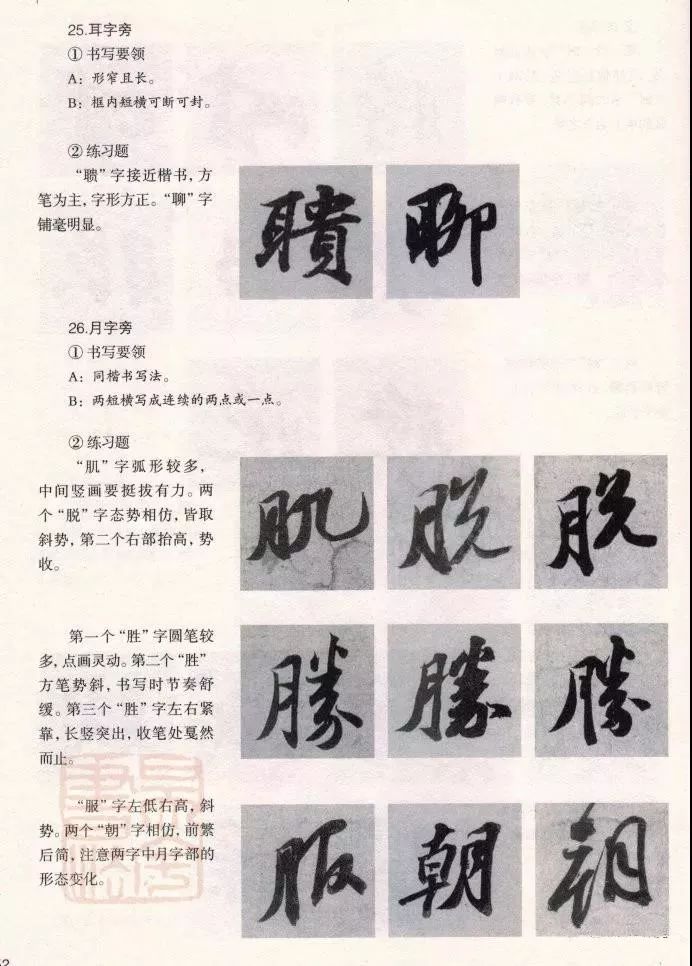 25.耳字旁
① 书写要领
A：形窄且长。
B：框内短横可断可封。
② 练习题
“聩”字接近楷书，方
笔为主，字形方正。“聊”字
铺毫明显。
聵 聊
26.月字旁
① 书写要领
A：同楷书写法。
B：两短横写成连续的两点或一点。
② 练习题
“肌”字弧形较多，
中间竖画要挺拔有力。两
个“脱”字态势相仿，皆取
斜势，第二个右部抬高，势
收。
肌 脱 脱
第一个“胜”字圆笔较
多，点画灵动。第二个“胜”
方笔势斜，书写时节奏舒
缓。第三个“胜”字左右紧
靠，长竖突出，收笔处戛然
而止。
勝 勝 勝
“服”字左低右高，斜
势。两个“朝”字相仿，前繁
后简，注意两字中月字部的
形态变化。
服 朝 朝